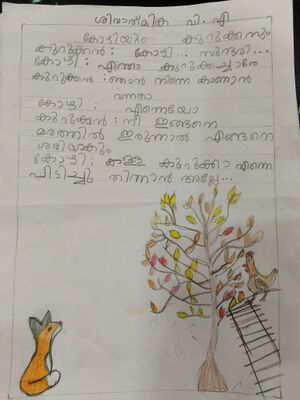 ശിവാത്മിക വി. എ
കോഴിയും കുറുക്കനും
കുറുക്കൻ: കോഴി... സുന്ദരി...
കോഴി: എന്താ കുറുക്കച്ചാരേ
കുറുക്കൻ :ഞാൻ നിന്നെ കാണാൻ
വന്നതാ
കോഴി : എന്നെയോ
കുറുക്കൻ: നീ ഇങ്ങനെ
മരത്തിൽ ഇരുന്നാൽ എങ്ങനെ
ശരിയാകും
കോഴി: കള്ള കുറുക്കാ എന്നെ
പിടിച്ചു തിന്നാൻ അല്ലേ...